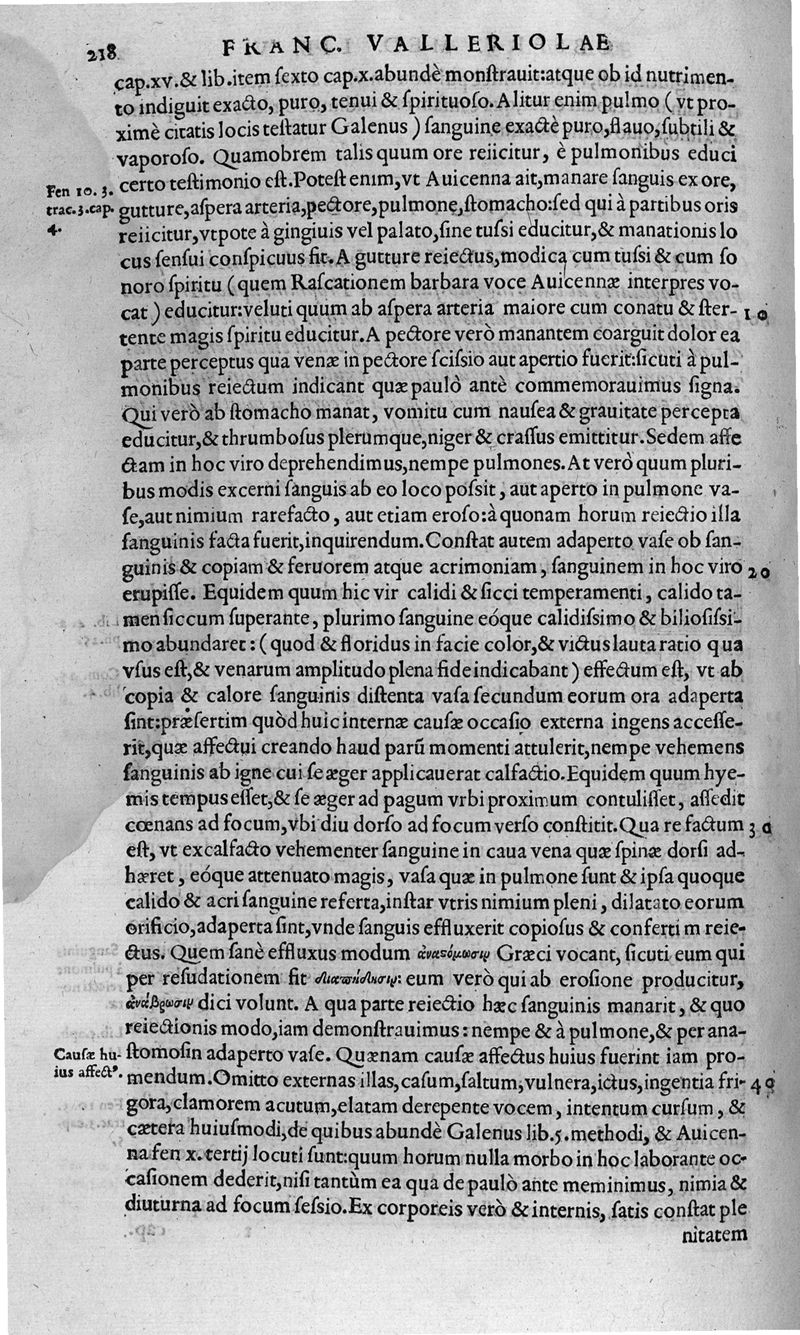 218 FRANC. VALLERIOLAE
cap.xv.& lib.item ſexto cap.x.abundè monſtrauit:atque ob id nutrimen-
to indiguit exacto, puro, tenui & ſpirituoſo. Alitur enim pulmo ( vt pro-
ximè citatis locis teſtatur Galenus ) ſanguine exactè puro,flauo,ſubtili &
vaporoſo. Quamobrem talis quum ore reiicitur, è pulmonibus educi
Fen 10. 3. certo teſtimonio eſt.Poteſt enim,vt Auicenna ait,manare ſanguis ex ore,
trac.3.cap. gutture,aſpera arteria,pectore,pulmone,ſtomacho:ſed qui à partibus oris
4. reiicitur,vtpote à gingiuis vel palato,ſine tuſsi educitur,& manationis lo
cus ſenſui conſpicuus fit.A gutture reiectus,modica cum tuſsi & cum ſo
noro ſpiritu (quem Raſcationem barbara voce Auicennæ interpres vo-
cat ) educitur:veluti quum ab aſpera arteria maiore cum conatu & ſter- 10
tente magis ſpiritu educitur.A pectore verò manantem coarguit dolor ea
parte perceptus qua venæ in pectore ſciſsio aut apertio fuerit:ſicuti à pul-
monibus reiectum indicant quæ paulò antè commemorauimus ſigna.
Qui verò ab ſtomacho manat, vomitu cum nauſea & grauitate percepta
educitur,& thrumboſus plerumque,niger & craſſus emittitur.Sedem affe
ctam in hoc viro deprehendimus,nempe pulmones.At verò quum pluri-
bus modis excerni ſanguis ab eo loco poſsit , aut aperto in pulmone va-
ſe,aut nimium rarefacto , aut etiam eroſo:à quonam horum reiectio illa
ſanguinis facta fuerit,inquirendum.Conſtat autem adaperto vaſe ob ſan-
guinis & copiam & feruorem atque acrimoniam, ſanguinem in hoc viro 20
erupiſſe. Equidem quum hic vir calidi & ſicci temperamenti, calido ta-
men ſiccum ſuperante, plurimo ſanguine eóque calidiſsimo & bilioſiſsi-
mo abundaret : (quod & floridus in facie color,& victus lauta ratio qua
vſus eſt,& venarum amplitudo plena fide indicabant) effectum eſt, vt ab
copia & calore ſanguinis diſtenta vaſa ſecundum eorum ora adaperta
ſint:præſertim quòd huic internæ cauſæ occaſio externa ingens acceſſe-
rit,quæ affectui creando haud parũ momenti attulerit,nempe vehemens
ſanguinis ab igne cui ſe æger applicauerat calfactio.Equidem quum hye-
mis tempus eſſet,& ſe æger ad pagum vrbi proximum contuliſſet , aſſedit
cœnans ad focum,vbi diu dorſo ad focum verſo conſtitit.Qua re factum 30
eſt, vt excalfacto vehementer ſanguine in caua vena quæ ſpinæ dorſi ad-
hæret , eóque attenuato magis, vaſa quæ in pulmone ſunt & ipſa quoque
calido & acri ſanguine referta,inſtar vtris nimium pleni , dilatato eorum
orificio,adaperta ſint,vnde ſanguis effluxerit copioſus & confertim reie-
ctus. Quem ſanè effluxus modum ἀναςόμωσιν Græci vocant, ſicuti eum qui
per reſudationem fit διαπήδησιν: eum verò qui ab eroſione producitur,
ἀνάβρωσιν dici volunt. A qua parte reiectio hæc ſanguinis manarit, & quo
reiectionis modo,iam demonſtrauimus: nempe & à pulmone,& per ana-
Cauſæ hu- ſtomoſin adaperto vaſe. Quænam cauſæ affectus huius fuerint iam pro-
ius affectꝰ. mendum.Omitto externas illas,caſum,ſaltum,vulnera,ictus,ingentia fri- 40
gora,clamorem acutum,elatam derepente vocem, intentum curſum, &
cætera huiuſmodi,de quibus abundè Galenus lib.5.methodi, & Auicen-
na fen x.tertij locuti ſunt:quum horum nulla morbo in hoc laborante oc-
caſionem dederit,niſi tantùm ea qua de paulò ante meminimus, nimia &
diuturna ad focum ſeſsio.Ex corporeis verò & internis, ſatis conſtat ple
nitatem